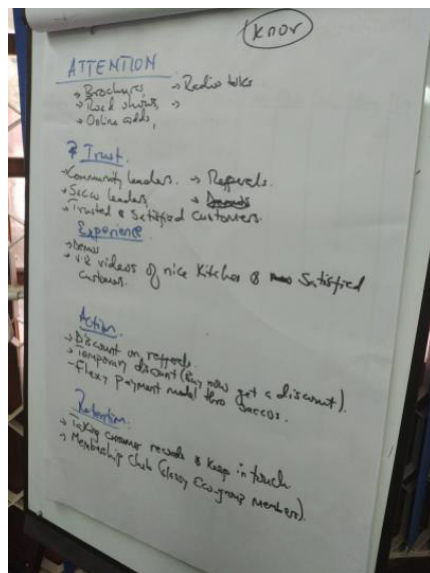 Know
ATTENTION
→ Brochures, → Radio talks
→ Road shows, →
→ Online adds,
? Trust.
→ Community leaders. → Referrals.
→ Sacco leaders,
→ Trusted & Satisfied Customers.
Experience
→ Demos
→ videos of nice Kitchen & Satisfied
Customers.
Action.
→ Discount on referrals.
→ Temporary discount (Buy now get a discount).
- Flexi payment model thro Saccos.
Retention.
→ Taking customer records & keep in touch.
→ Membership Club (Classy Eco-group members).